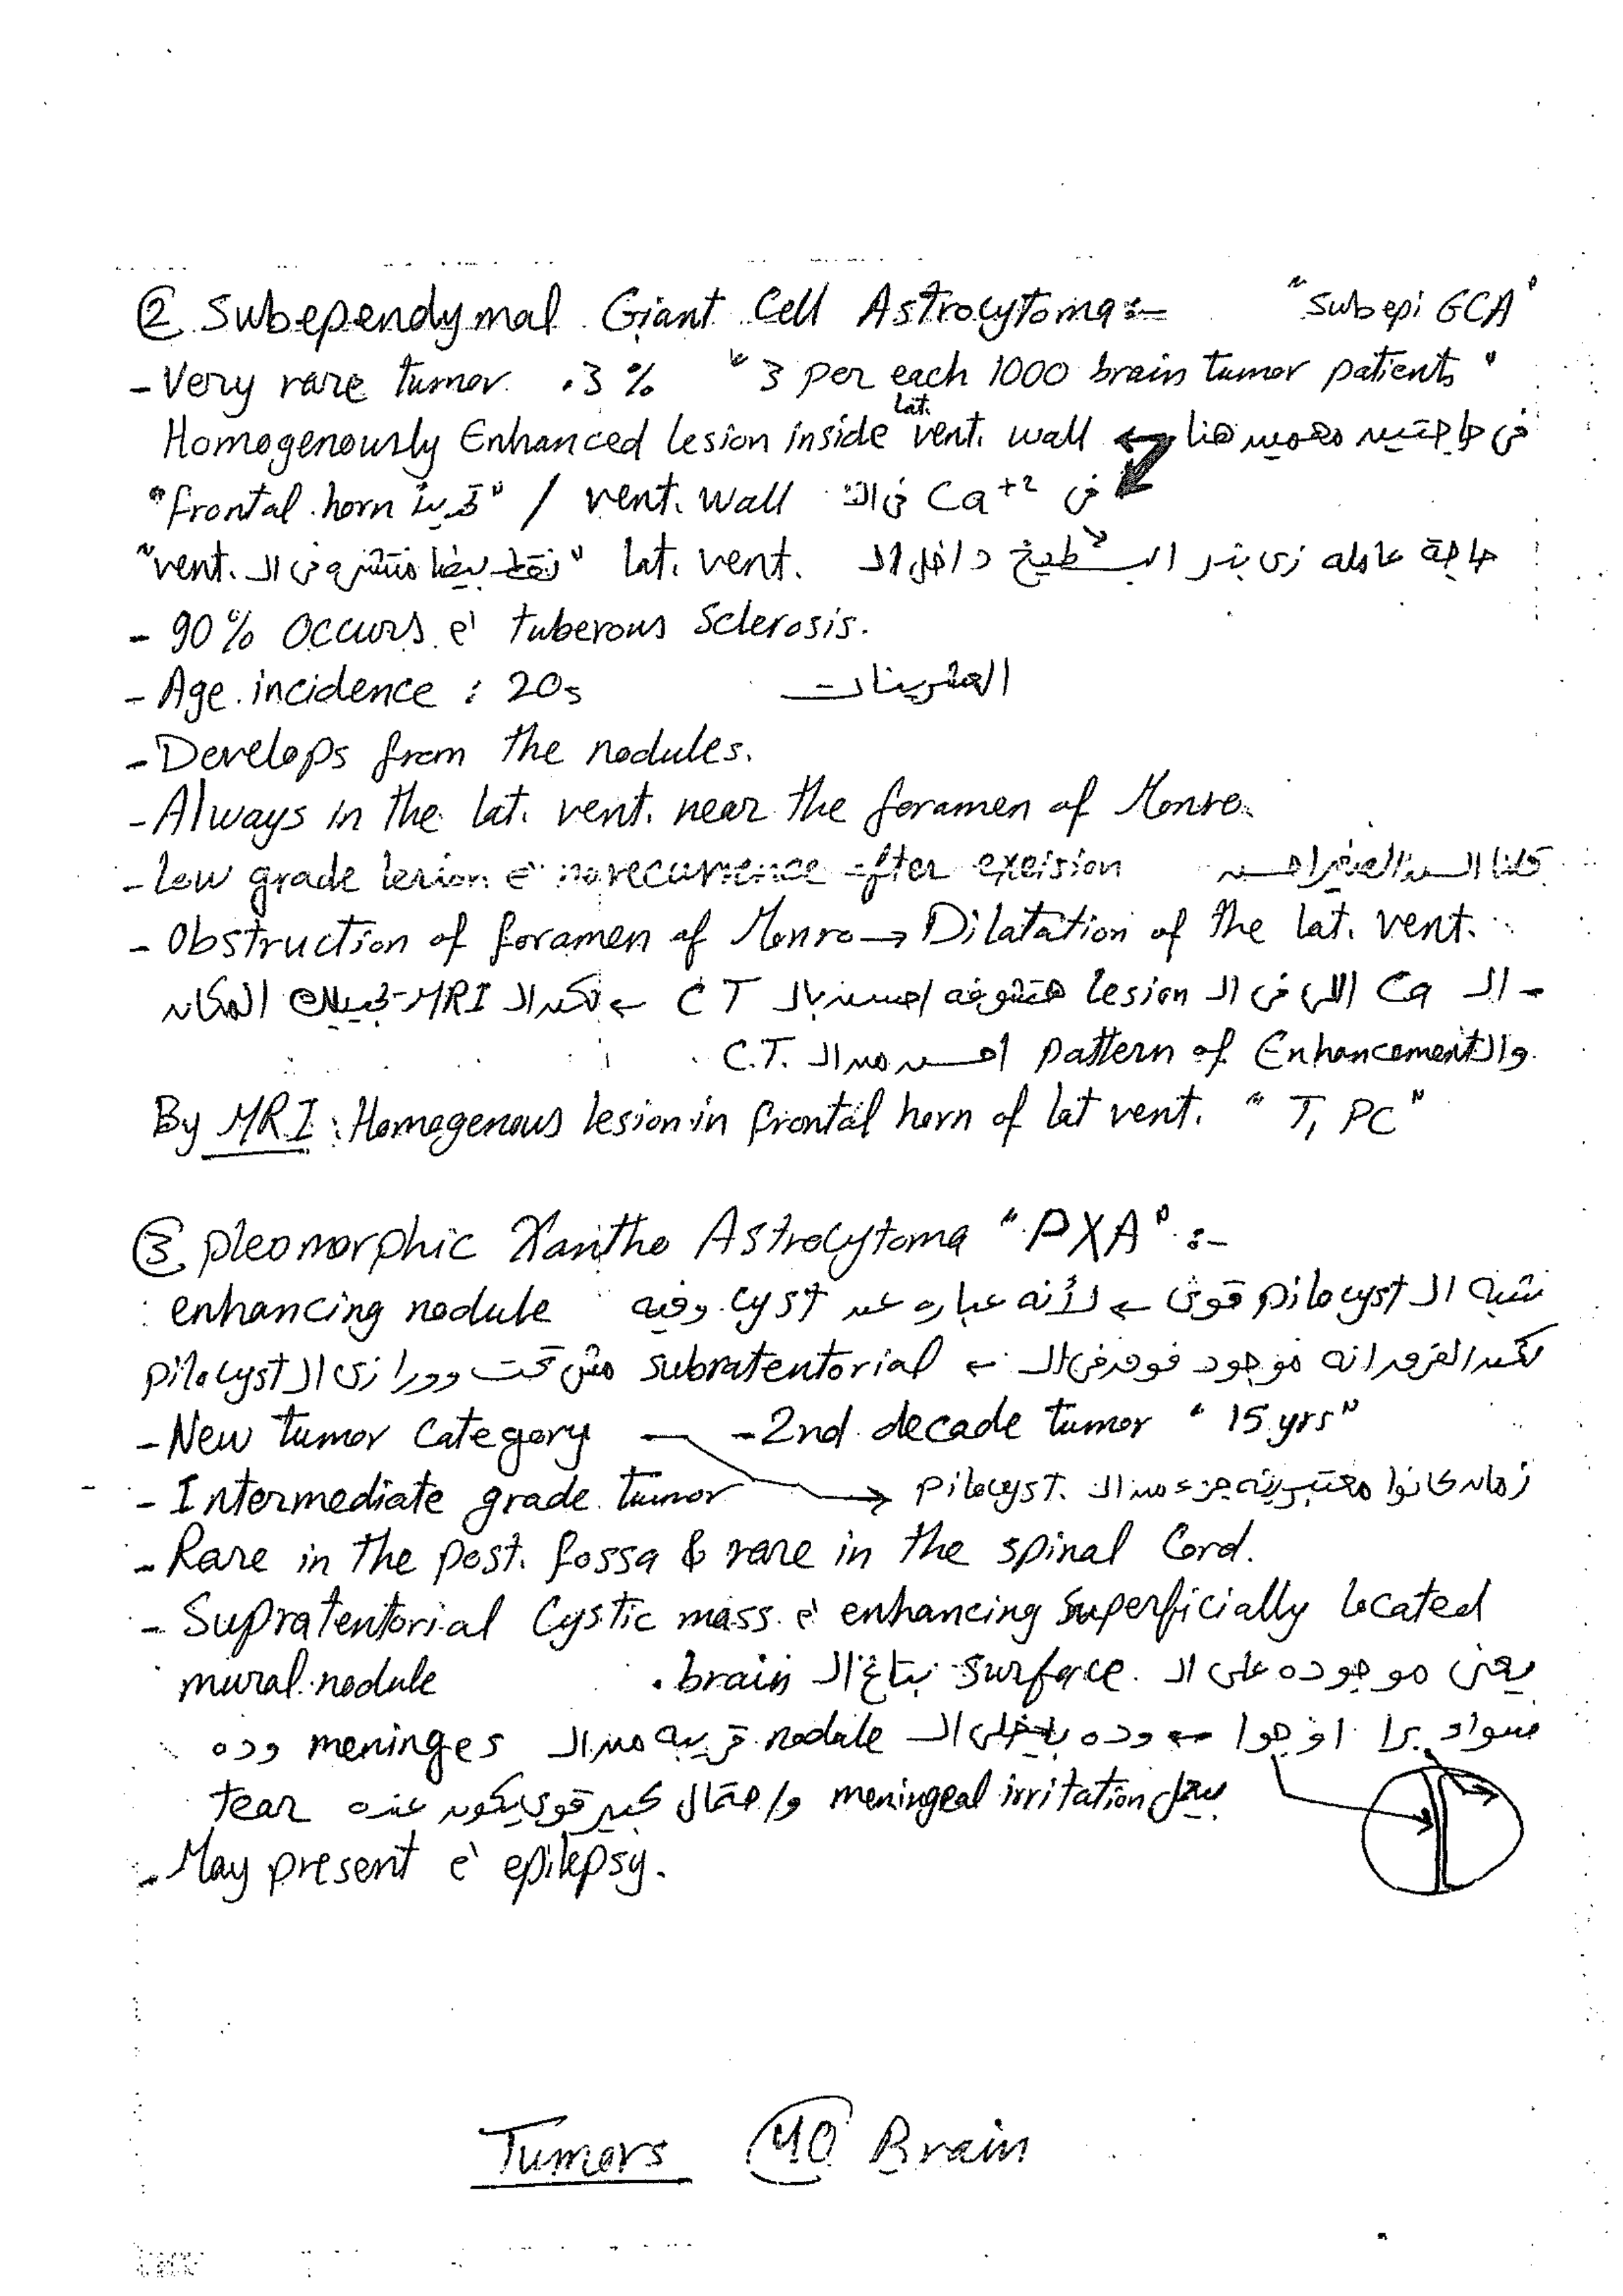 ② Subependymal Giant Cell Astrocytoma:- "Subepi GCA"
- Very rare tumor .3% "3 per each 1000 brain tumor patients"
في حاجتين مهمين هنا ↔ Homogenously Enhanced lesion inside lat. vent. wall
في Ca+2 في الـ vent. wall / "frontal horn تقريباً"
حاجة عامله زى بذر البطيخ داخل الـ lat. vent. "نقط بيضا منتشره في الـ vent."
- 90% occurs c̄ tuberous Sclerosis.
- Age incidence : 20s العشرينات
- Develops from the nodules.
- Always in the lat. vent. near the foramen of Monro.
- Low grade lesion c̄ no recurrence after excision قلنا السن الصغير احسن
- Obstruction of foramen of Monro → Dilatation of the lat. vent.
- الـ Ca اللى في الـ lesion هتشوفه احسن بالـ CT ← لكن الـ MRI المكان
والـ pattern of Enhancement احسن من الـ C.T.
By MRI : Homogenous lesion in frontal horn of lat vent. "T1 PC"
③ pleomorphic Xantho Astrocytoma "PXA" :-
شبه الـ pilocyst قوى ← لأنه عباره عن cyst وفيه enhancing nodule
لكن الفرق انه موجود فوق في الـ ← subratentorial مش تحت وورا زى الـ pilocyst
- New tumor category - 2nd decade tumor "15 yrs"
- Intermediate grade tumor → زمان كانوا معتبرينه جزء من الـ pilocyst.
- Rare in the post. fossa & rare in the spinal Cord.
- Supratentorial Cystic mass c̄ enhancing Superficially located
mural nodule يعني موجوده على الـ surface بتاع الـ brain.
سواء برا او جوا ← وده بيخلى الـ nodule قريبه من الـ meninges وده
بيعمل meningeal irritation واحتمال كبير قوى يكون عنده tear
- May present c̄ epilepsy.
Tumors 40 Brain